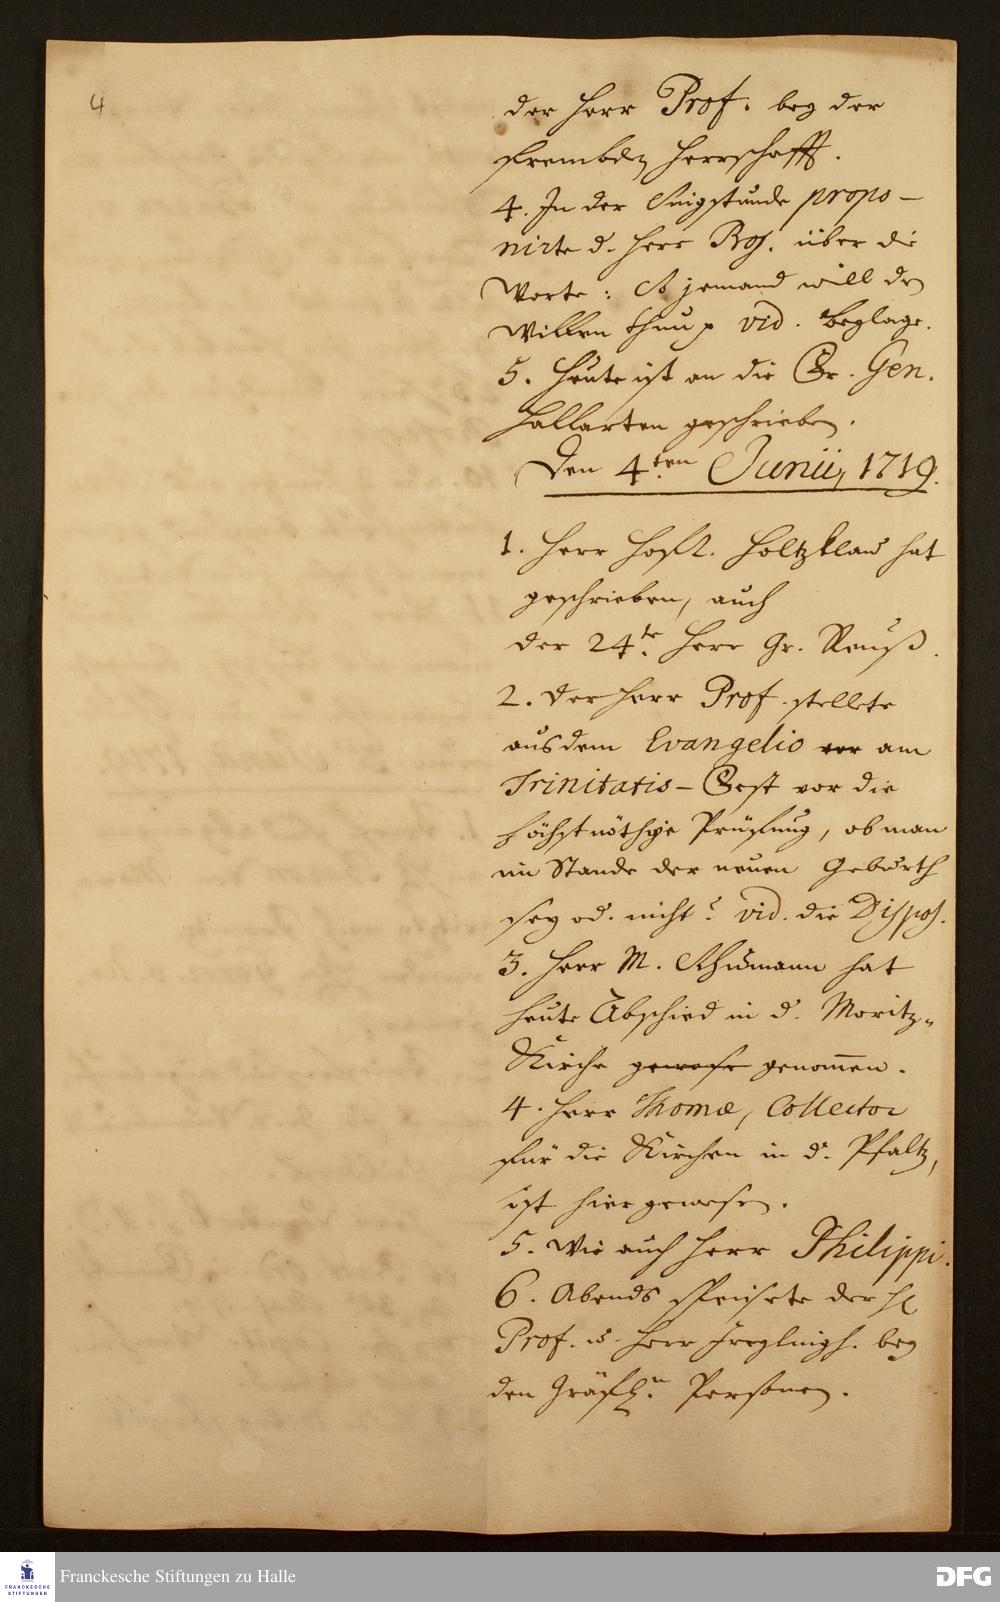 4
der Herr Prof. bey der
frembden Herrschafft.
4. In der Singstunde propo-
nirte d. Herr Prof. über die
Worte: So jemand will den
Willen thun p vid. Beylage.
5. Heute ist an die Fr. Gen.
Hallarten geschrieben.
Den 4.ten Junii, 1719.
1. Herr Hofr. Holtzklau hat
geschrieben, auch
der 24.te Herr Gr. Reuß.
2. Der Herr Prof. stellete
aus dem Evangelio vor am
Trinitatis-Fest vor die
höchstnöthige Prüfung, ob man
im Stande der neuen Geburth
sey od. nicht? vid. die Dispos.
3. Herr M. hat
heute Abschied in d. Moritz-
Kirche gewese genommen.
4. Herr Thomæ, Collector
für die Kirchen in d. Pfaltz,
ist hier gewesen.
5. Wie auch Herr Philippi.
6. Abends speisete der H.
Prof. u. Herr Freylingh. bey
den Gräfl.n Personen.
FRANCKESCHE STIFTUNGEN
Franckesche Stiftungen zu Halle
DFG